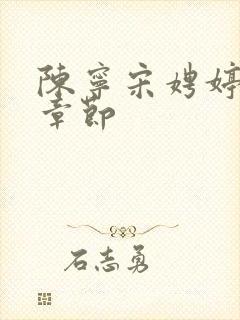 陳寧宋娉婷
章節
石志勇